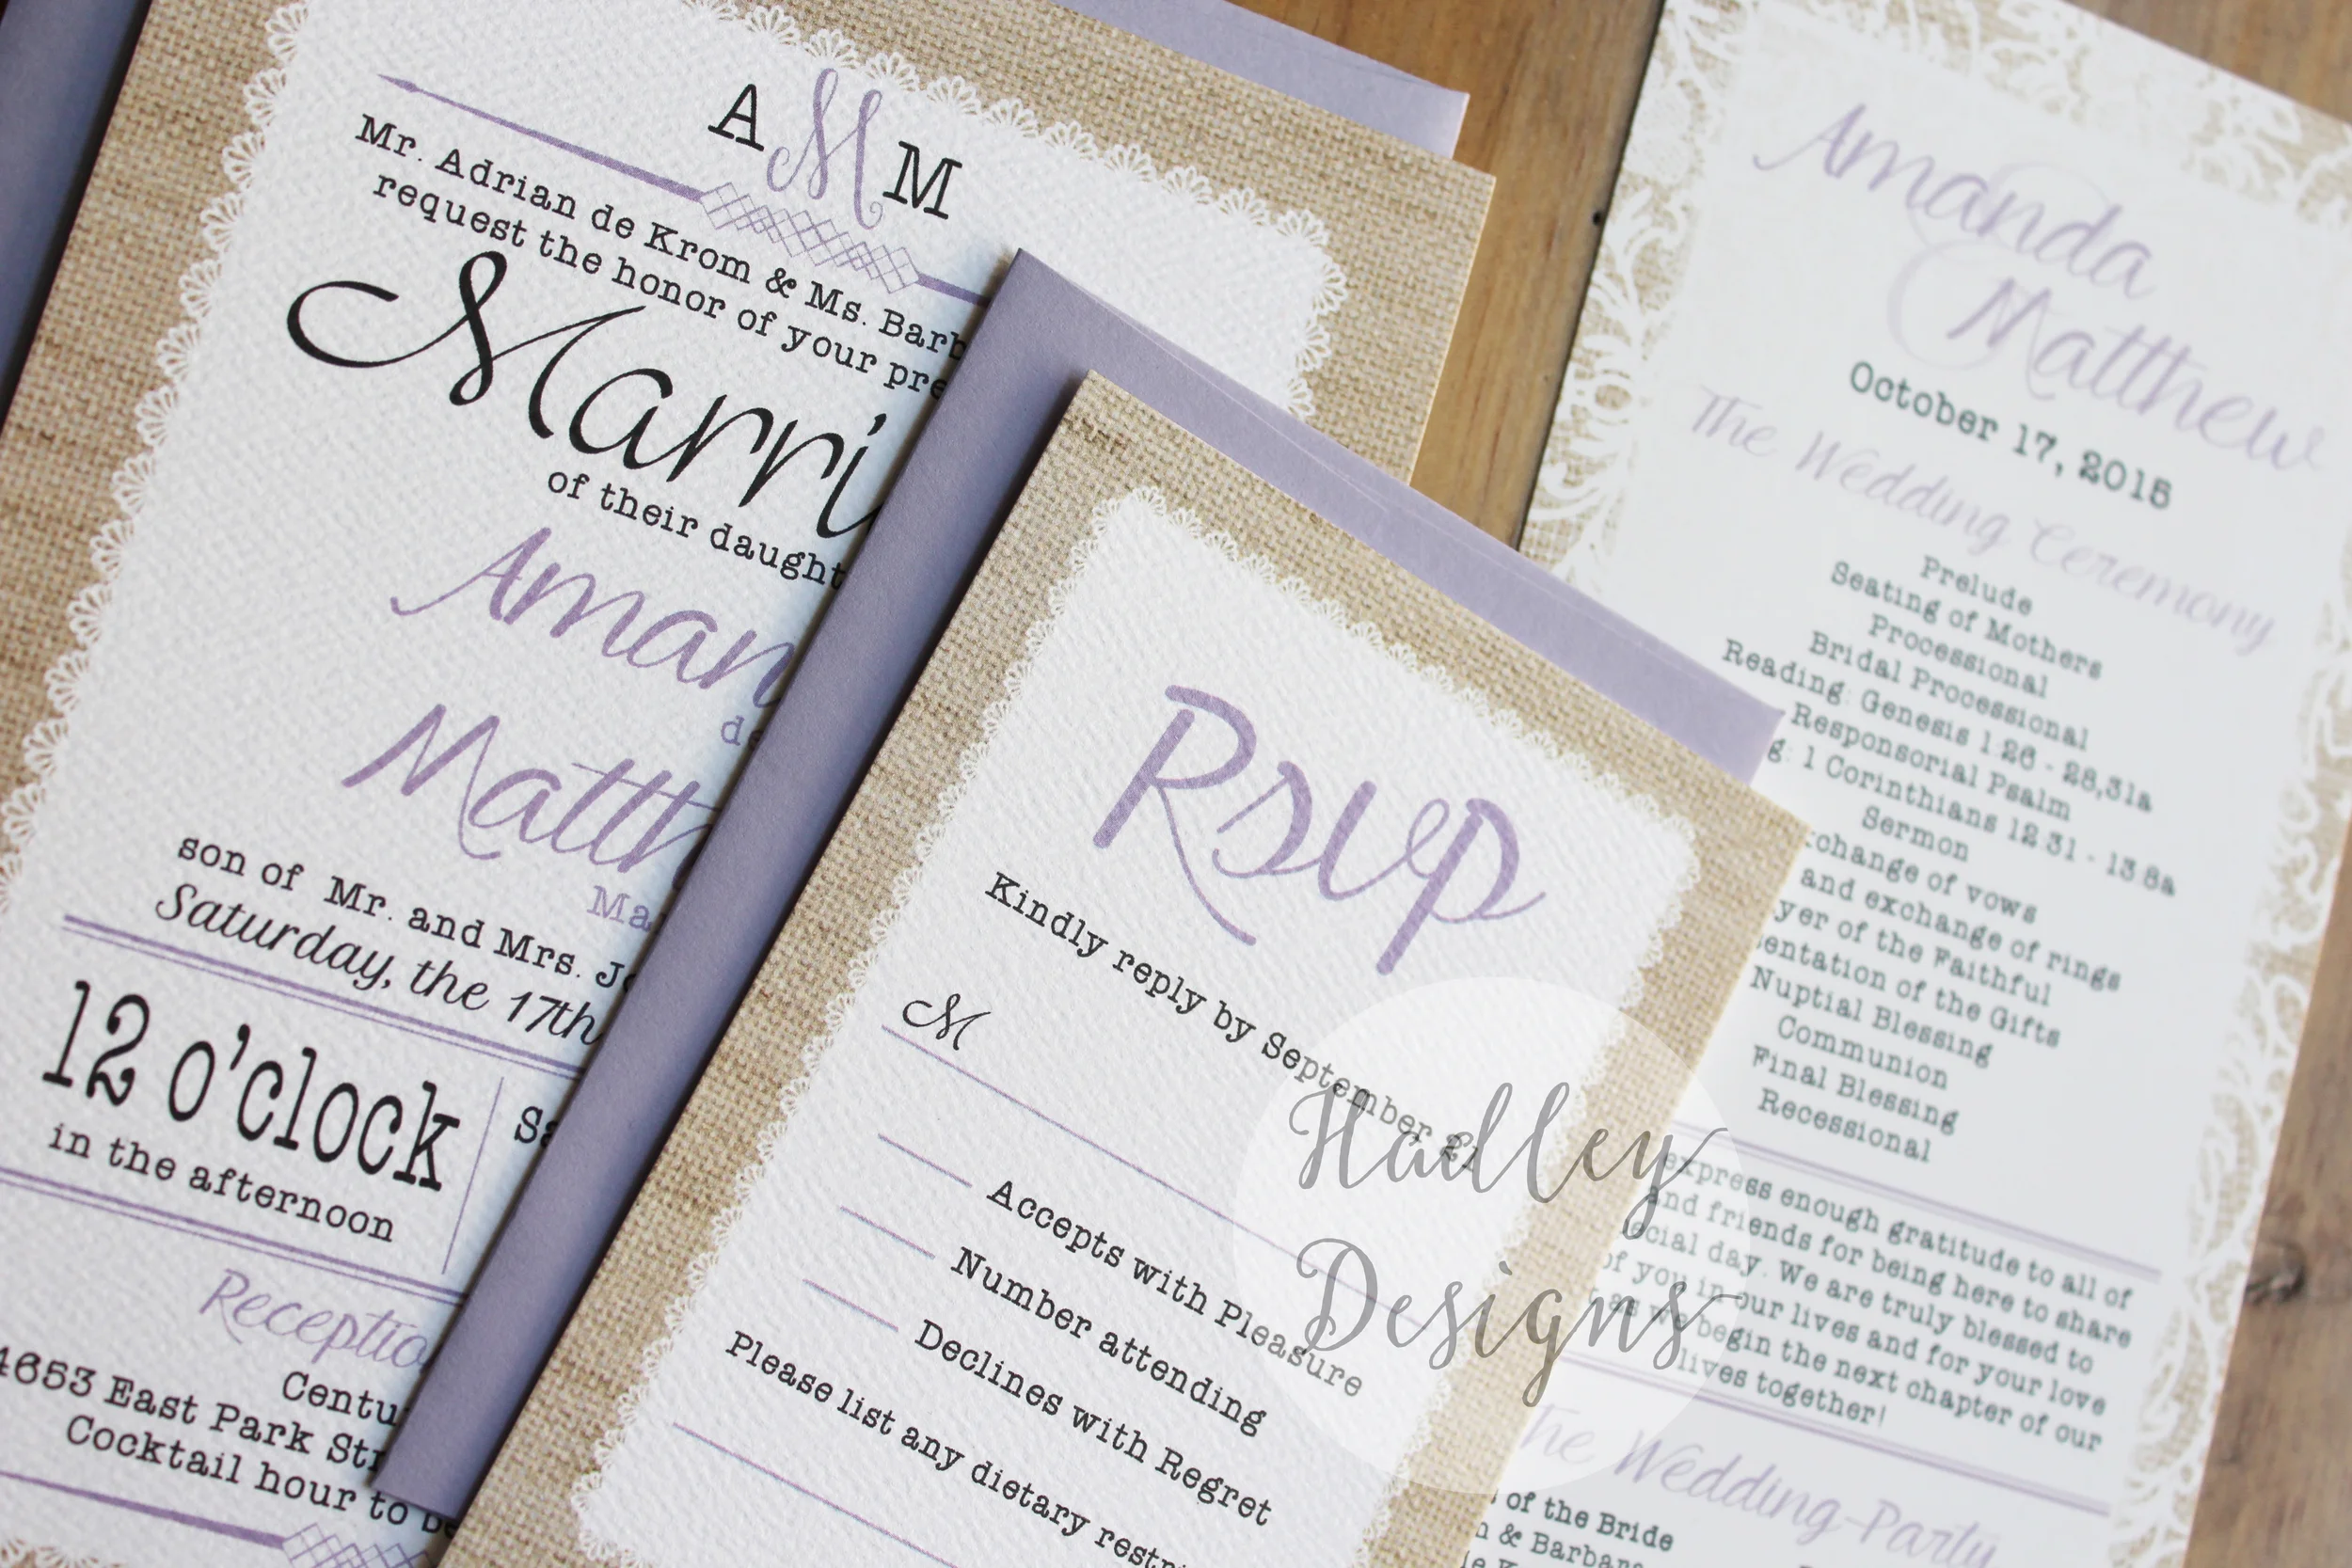 A M M
Mr. Adrian de Krom & Ms. Barb
request the honor of your pre
Marri
of their daught
Aman
de
Matth
Ma
son of Mr. and Mrs. Jo
Saturday, the 17th
12 o'clock
in the afternoon
Sa
Reception
Centu
4653 East Park Str
Cocktail hour to be
RSVP
Kindly reply by September 21
M
Accepts with Pleasure
Number attending
Declines with Regret
Please list any dietary restri
Hadley
Designs
Amanda
Matthew
October 17, 2015
The Wedding Ceremony
Prelude
Seating of Mothers
Processional
Bridal Processional
Reading: Genesis 1:26 - 28,31a
Responsorial Psalm
g: 1 Corinthians 12:31 - 13:8a
Sermon
xchange of vows
and exchange of rings
yer of the Faithful
entation of the Gifts
Nuptial Blessing
Communion
Final Blessing
Recessional
express enough gratitude to all of
and friends for being here to share
ecial day. We are truly blessed to
of you in our lives and for your love
as we begin the next chapter of our
lives together!
The Wedding Party
of the Bride
& Barbara